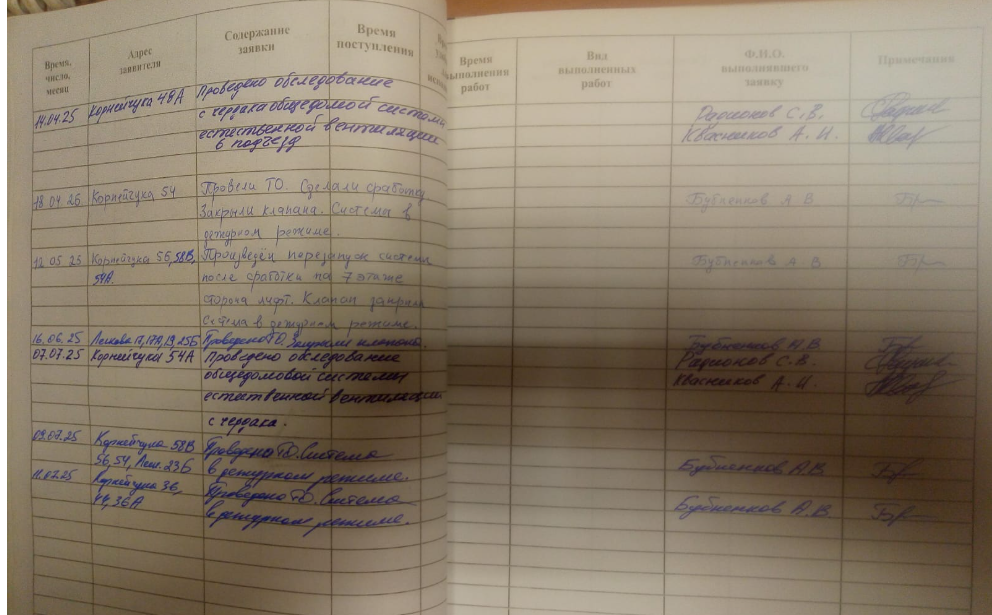 Время, число, месяц
Адрес заявителя
Содержание заявки
Время поступления
Время выполнения работ
Вид выполненных работ
Ф.И.О. выполнявшего заявку
Примечания
14.04.25 Корнейчука 48А Проведено обследование
с чердака общедомовой системы
естественной вентиляции
в подъезд
Радионов С.В.
Квасников А.И.
Корнейчука 54 Провели ТО. Сделали сработку
Закрыли клапана. Система в
дежурном режиме.
Бубненков А В
12 05 25 Корнейчука 56, 58В, Произведён перезапуск системы
после сработки на 7 этаже
сторона лифт. Клапан закрыли
Система в дежурном режиме.
Бубненков А В
16.06.25 Лескова 17, 17А, 19, 25Б Проведено ТО. Закрыли клапана.
Бубненков А.В.
07.07.25 Корнейчука 54А Проведено обследование
общедомовой системы
естественной вентиляции
с чердака.
Радионов С.В.
Квасников А.И.
09.07.25 Корнейчука 58В Проведено ТО. Система
56, 54, Леск. 23Б в дежурном режиме.
Бубненков А.В.
11.07.25 Корнейчука 36, Проведено ТО. Система
36А в дежурном режиме.
Бубненков А.В.